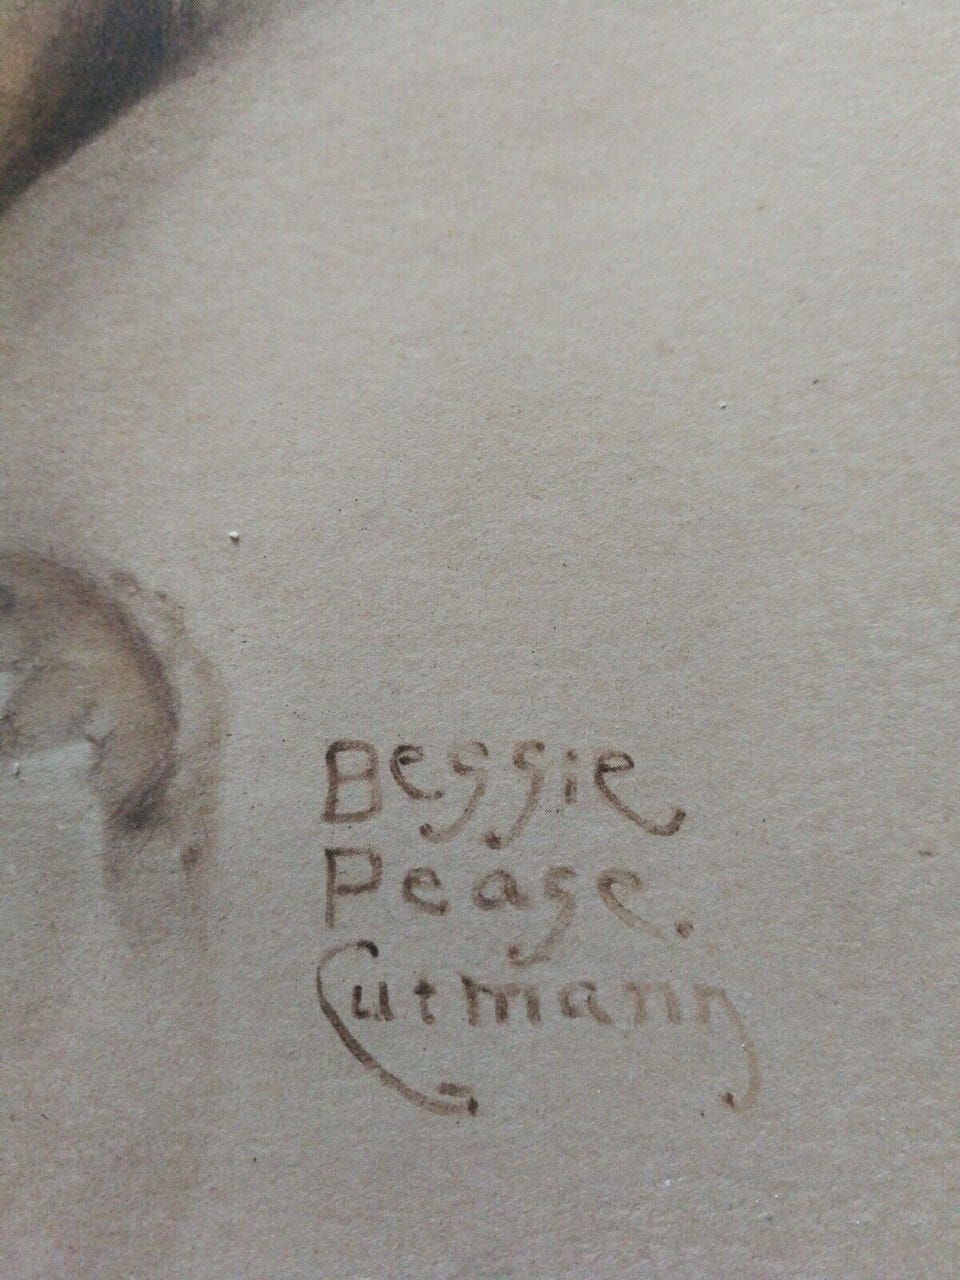 Bessie
Pease.
Gutmann